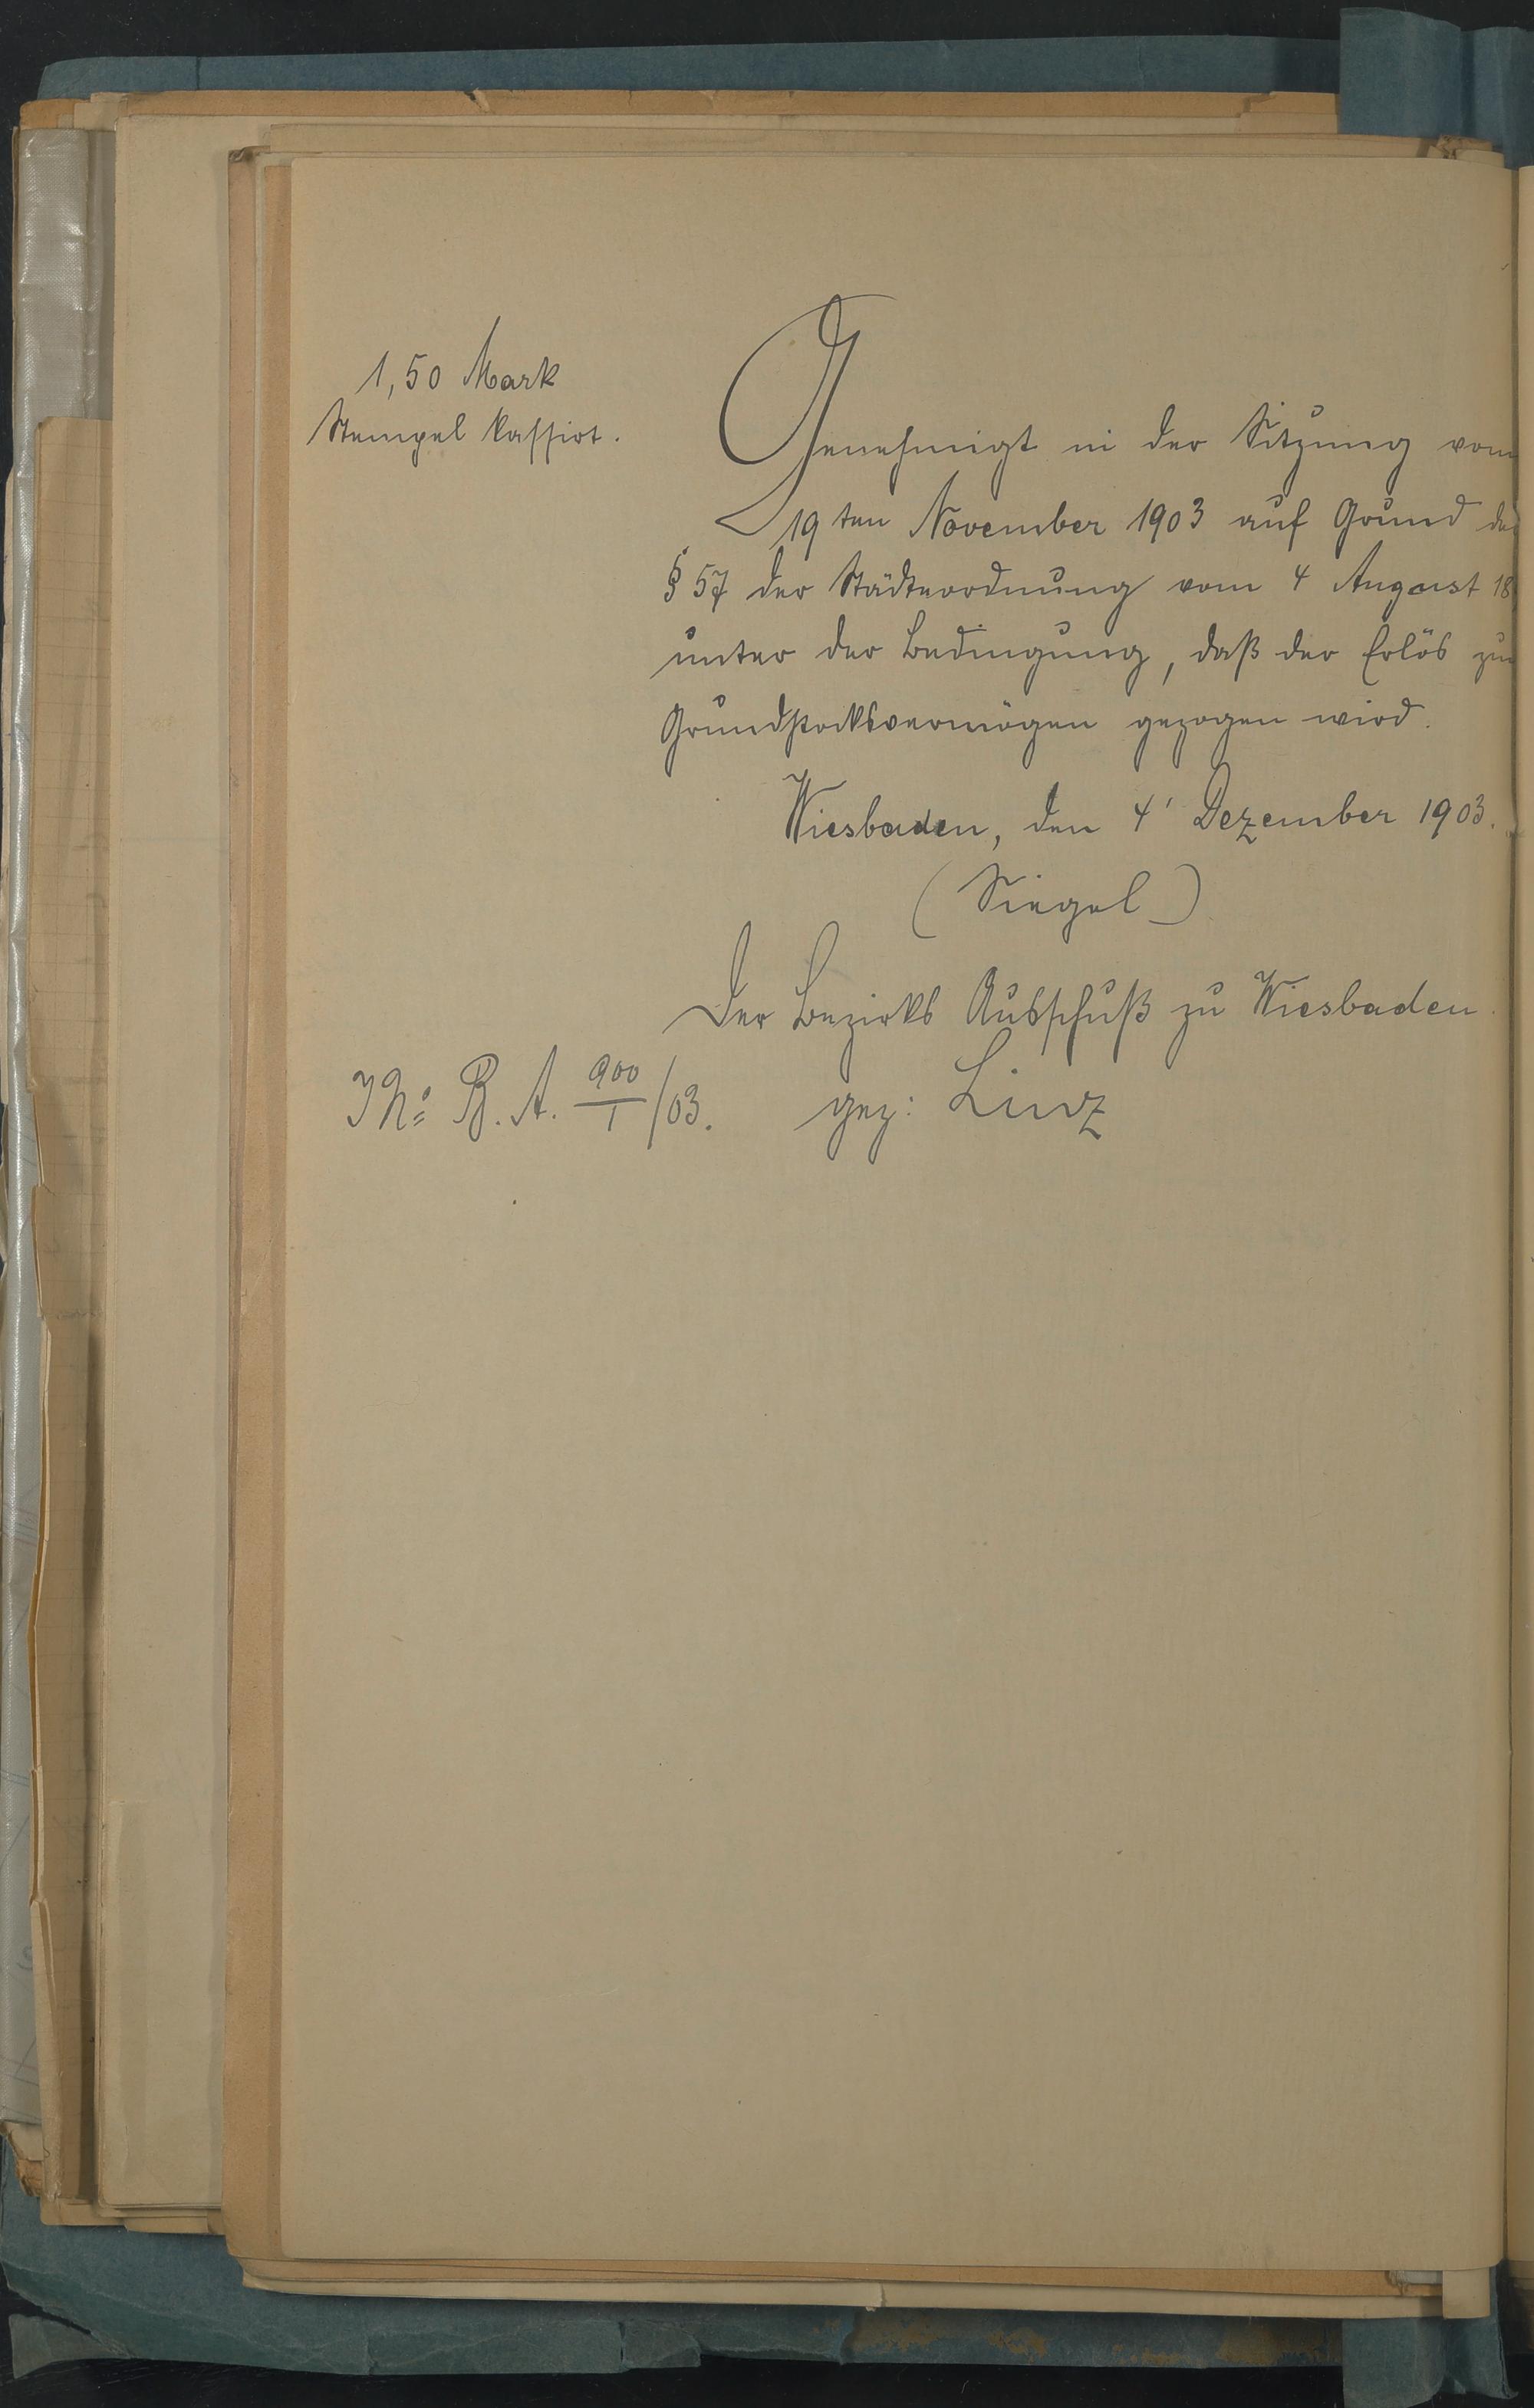 1,50 Mark
Stempel kassirt.
Genehmigt in der Sitzung vom
19ten November 1903 auf Grund des
§ 57 der Städteordnung vom 4 August 18
unter der Bedingung, daß der Erlös zum
Grundstocksvermögen gezogen wird.
Wiesbaden, den 4' Dezember 1903.
(Siegel)
Der Bezirks Ausschuß zu Wiesbaden.
J No: B. A. 900/I /03. gez: Linz